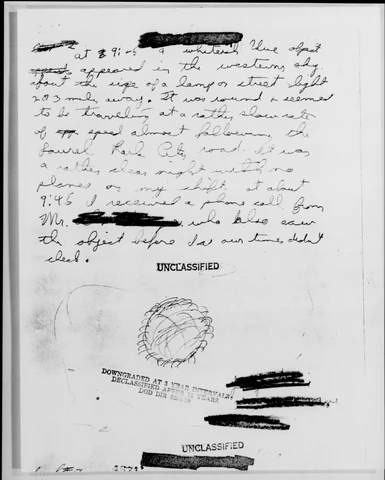 at 9:45 a whiteish blue object
appeared in the western sky
about the size of a lamp or street light
2 or 3 miles away. It was round & seemed
to be traveling at a rather slow rate
of speed almost following the
Laurel Park City road. It was
a rather clear night with no
planes on my shift. at about
9:45 I received a phone call from
Mr. who also saw
the object before I as our times didn't
check.
UNCLASSIFIED
DOWNGRADED AT 3 YEAR INTERVALS;
DECLASSIFIED AFTER 12 YEARS
DOD DIR 5200.10
UNCLASSIFIED